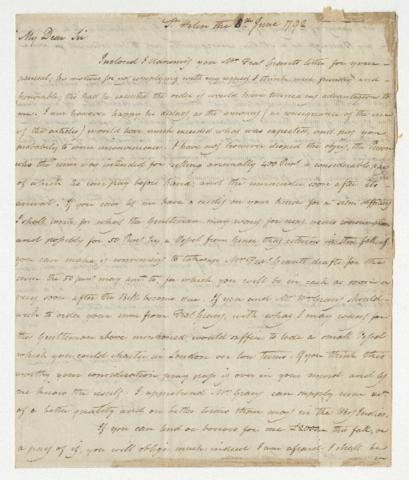 St. Helen the 8th June 1792
My Dear Sir
Inclosed I transmit you Mr. Grant's letter for your
perusal, his motives for not complying with my request I think were prudent and
honourable, tho had he permitted the order it would have turned my advantage to
me. I am however happy he did as the amount, in consequence of the rise
of the article, would have much exceeded what was expected, and put you
probably to some inconvenience. I have not however dropt the object, the Person
who the rum was intended for retains annually 400 Puns. a considerable part
of which he will pay before hand, and the remainder soon after its
arrival. If you can by an have a credit on your house for a sum
I shall write for what the Gentleman may want for next years consumption
and probably for 50 Puns. by a Vessel from that returns in the fall, if
you can make it convenient to the Mr. Grant's drafts for the
sum the 50 puns. may amt. to, for which you will be in cash as soon or
very soon after the Bills become due. If you and Mr. Wm. Grant should
wish to order your rum from Grant, with what I may want for
the Gentleman above mentioned would suffice to load a small Vessel
which you could charter in London on low terms. If you think this
worthy your consideration pray pass it over in your mind and let
me know the result. I apprehend Mr. Grant can supply rum
of a better quality and on better terms than may in the West Indies.
If you can lend or borrow for me £2000 this fall, or
a part of it, you will oblige much indeed I am afraid I shall be